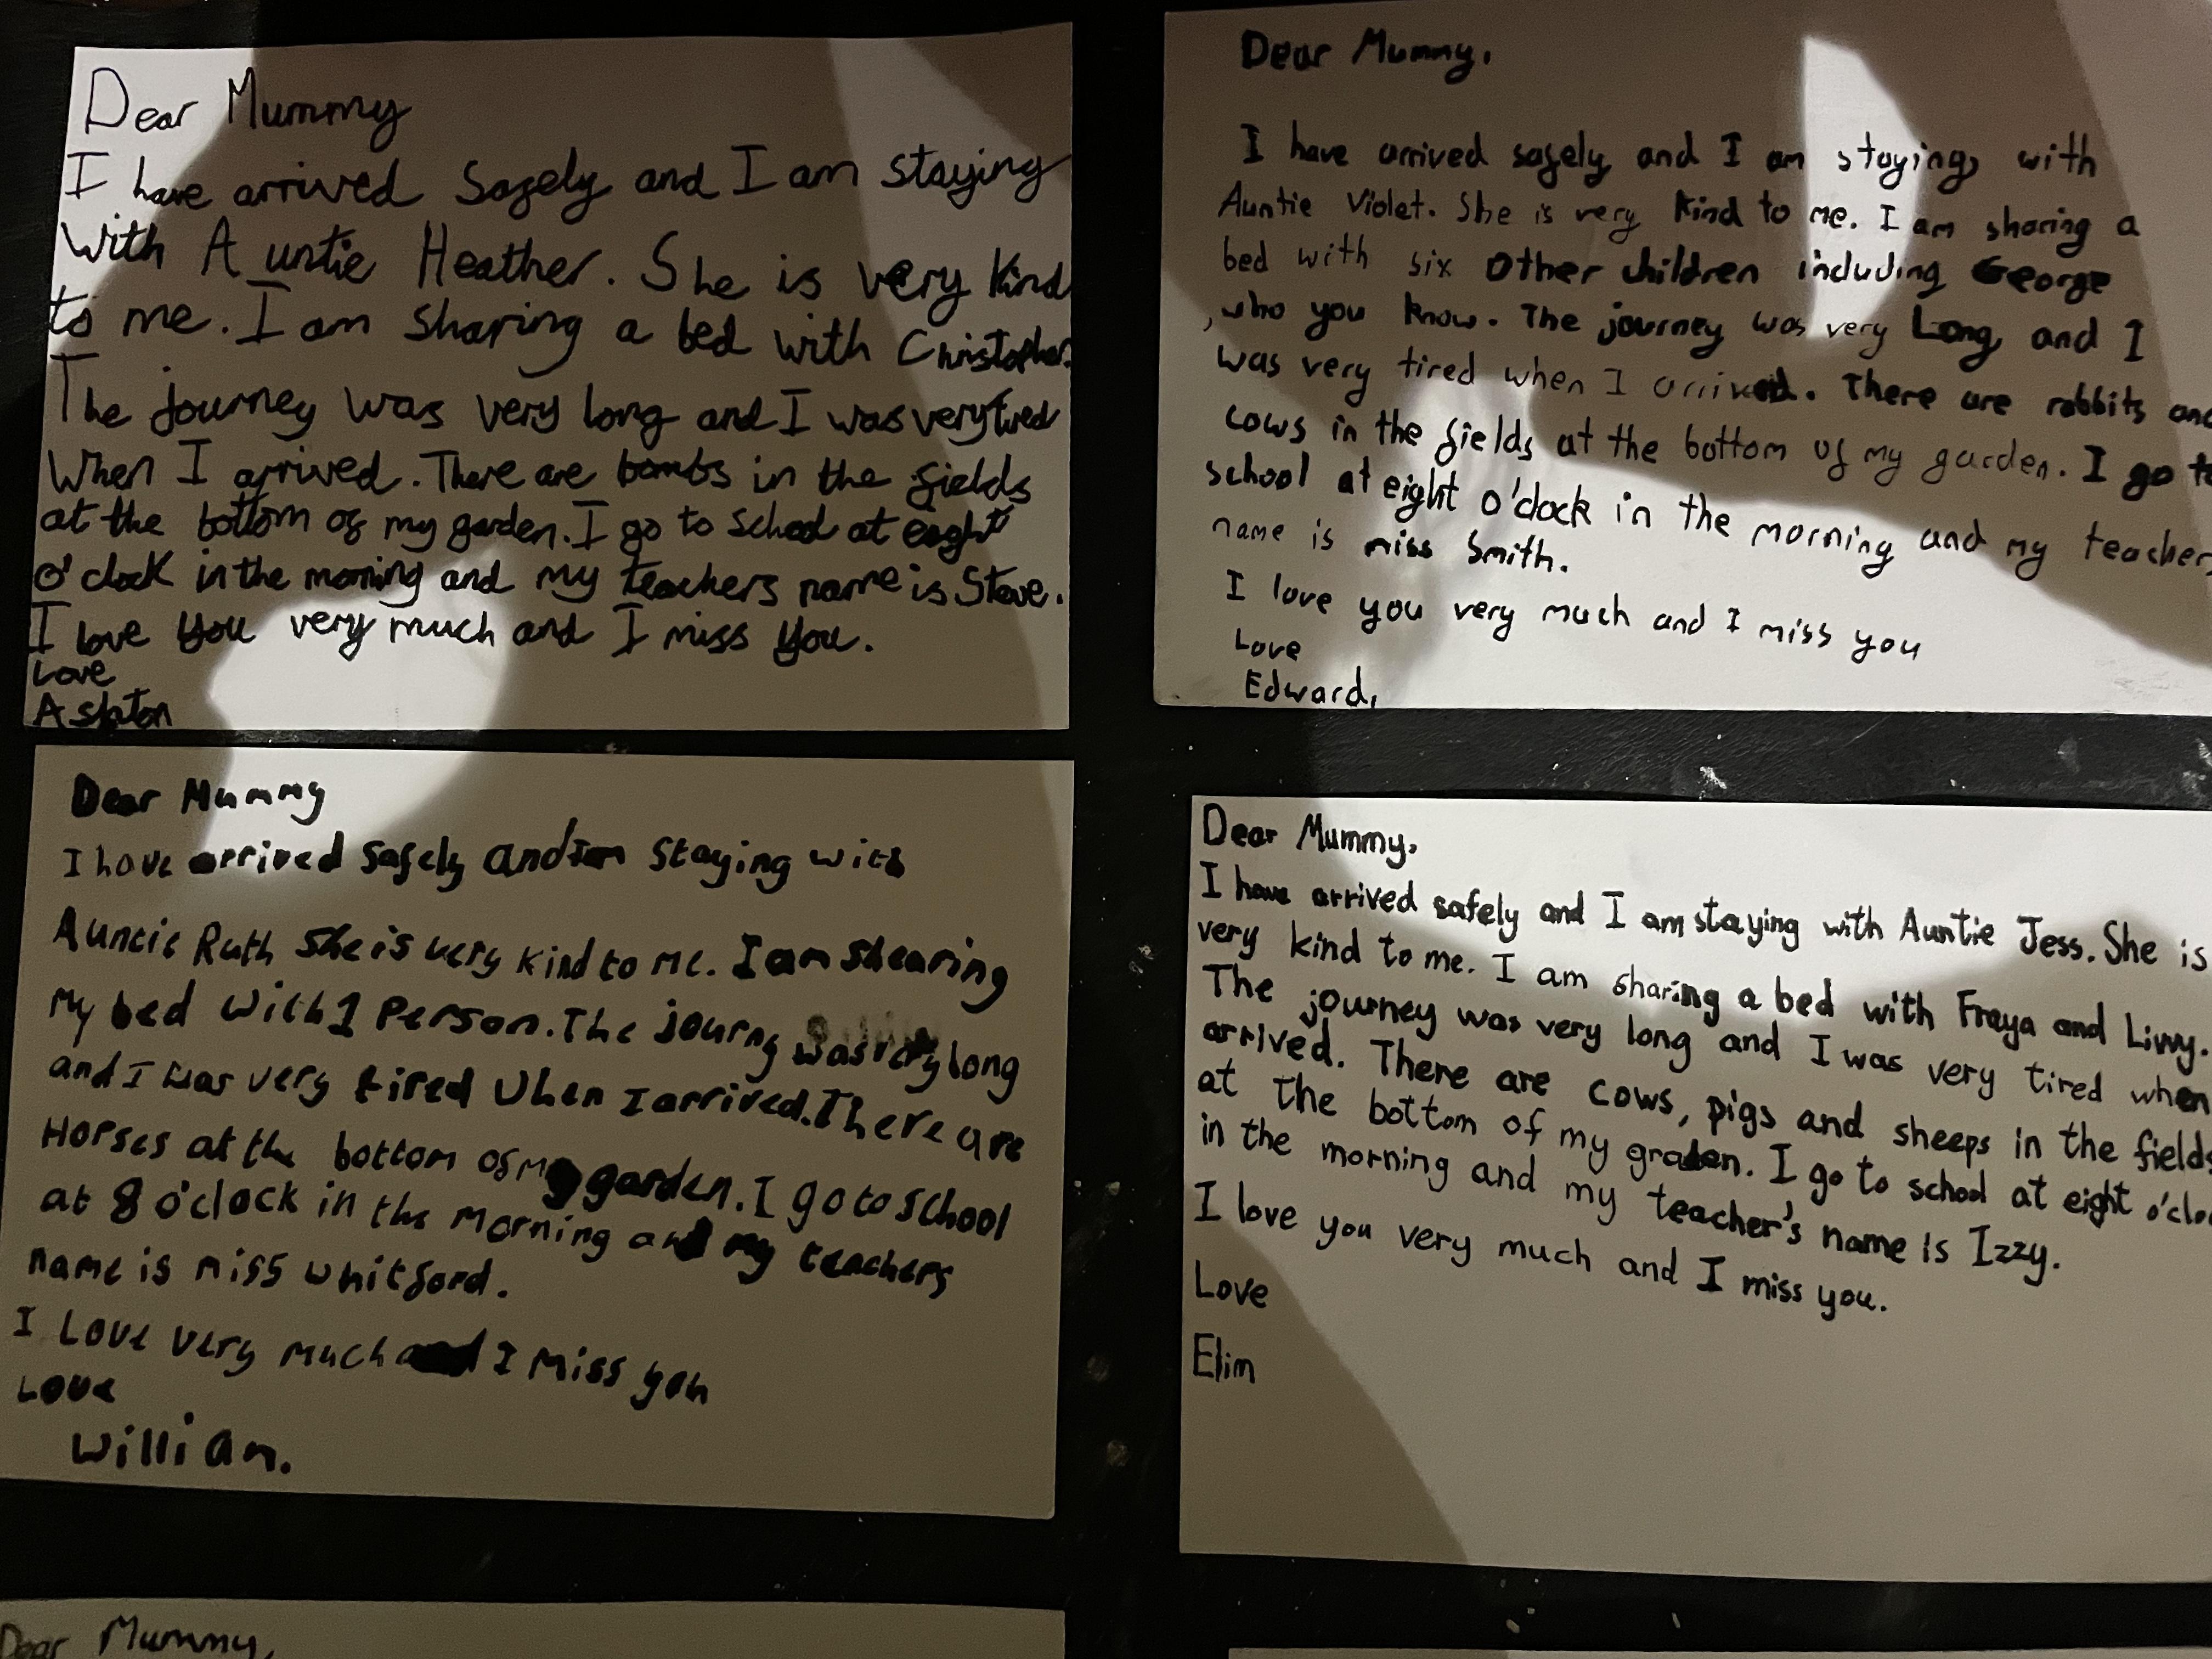 Dear Mummy
I have arrived safely and I am staying
with Auntie Heather. She is very kind
to me. I am sharing a bed with Christopher.
The journey was very long and I was very tired
when I arrived. There are bombs in the fields
at the bottom of my garden. I go to school at eight
o'clock in the morning and my teachers name is Steve.
I love you very much and I miss you.
Love
Ashton
Dear Mummy,
I have arrived safely and I am staying with
Auntie Violet. She is very kind to me. I am sharing a
bed with six other children including George
, who you know. The journey was very Long, and I
was very tired when I arrived. There are rabbits and
cows in the fields at the bottom of my garden. I go to
school at eight o'clock in the morning and my teacher,
name is miss Smith.
I love you very much and I miss you
Love
Edward,
Dear Mummy
I have arrived safely and Iam staying with
Auntie Ruth She is very kind to me. I am shearing
my bed with 1 person. The journy was very long
and I was very tired when I arrived. There are
Horses at the bottom of my garden. I go to school
at 8 o'clock in the morning and my teachers
name is miss whitford.
I Love very much and I miss you
Love
William.
Dear Mummy,
I have arrived safely and I am staying with Auntie Jess. She is
very kind to me. I am sharing a bed with Freya and Livvy.
The journey was very long and I was very tired when
arrived. There are cows, pigs and sheeps in the fields
at the bottom of my graden. I go to school at eight o'cloc
in the morning and my teacher's name is Izzy.
I love you very much and I miss you.
Love
Elim
Dear Mummy,